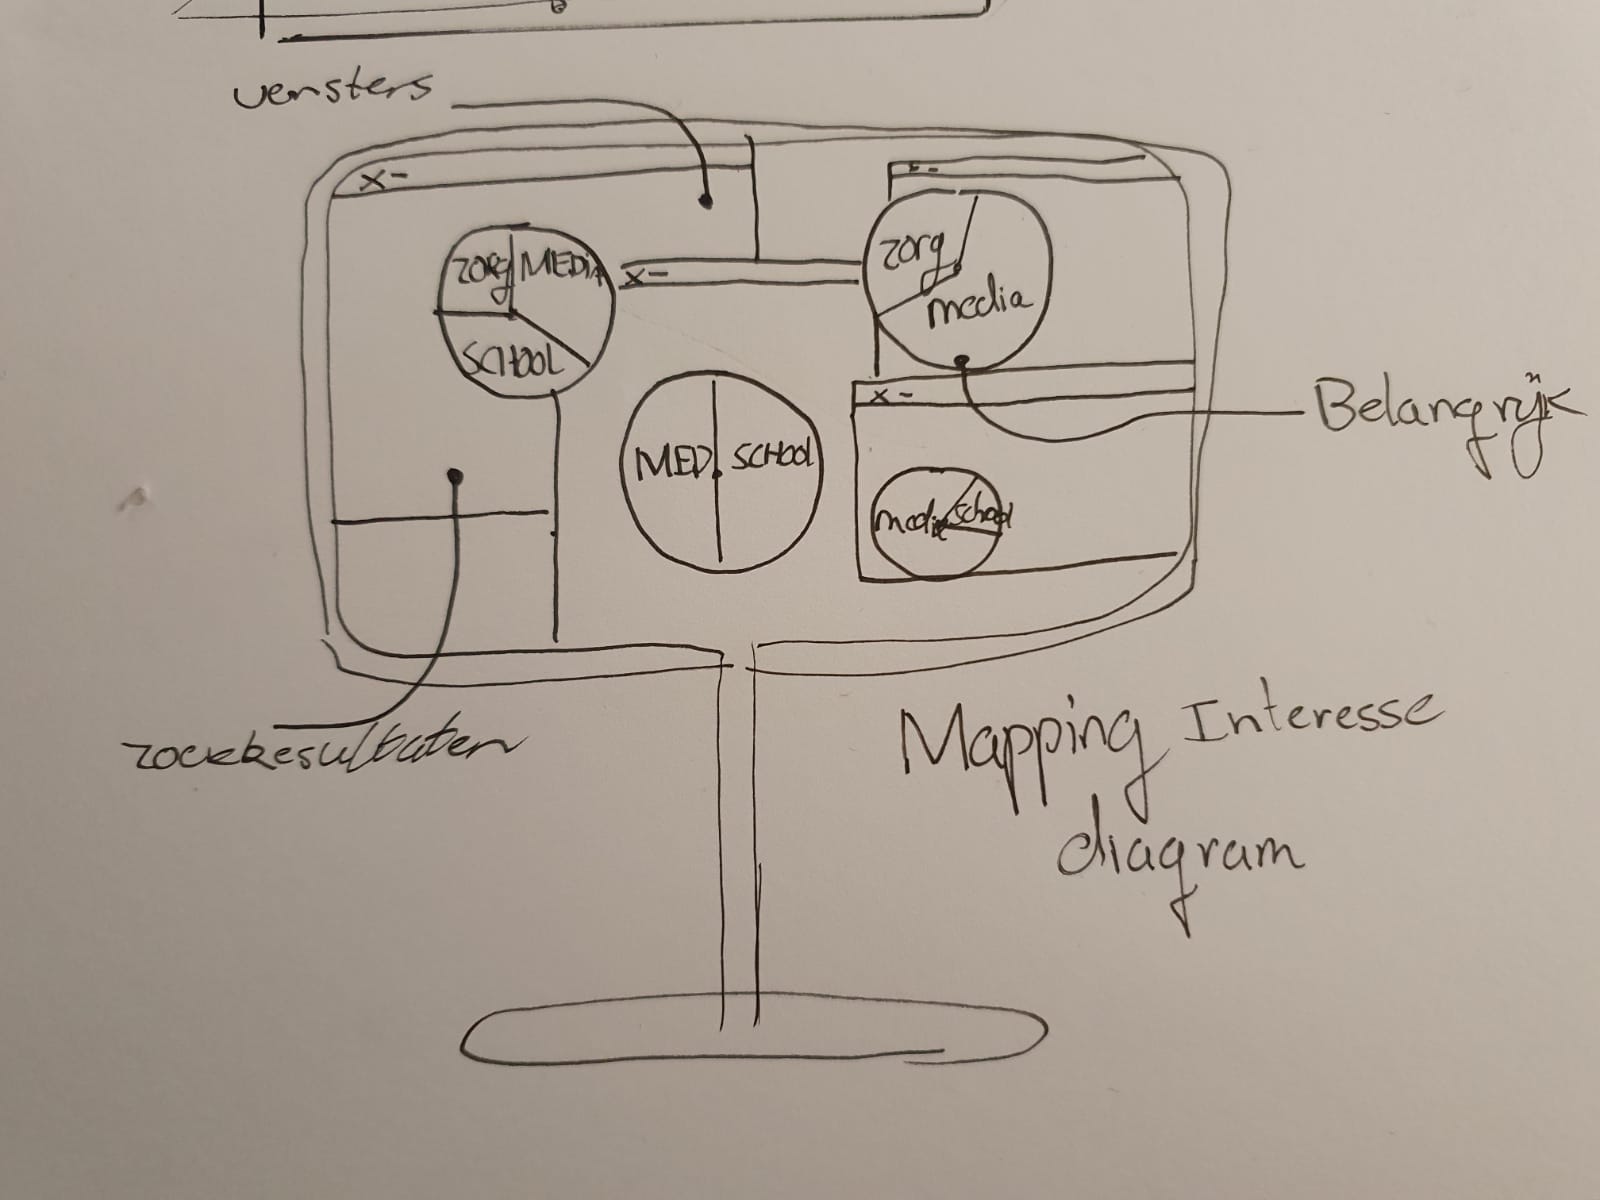 vensters
x-
x-
zorg MEDIA
SCHOOL
x-
zorg
media
x-
Belangrijk
MED SCHOOL
media school
zoekresultaten
Mapping Interesse
diagram